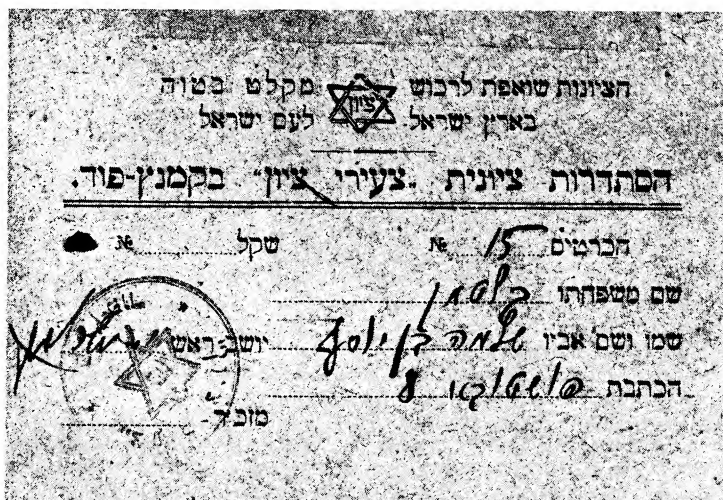 הציונות שואפת לרכוש ציון מקלט בטוח
בארץ ישראל לעם ישראל
הסתדרות ציונית "צעירי ציון" בקמנץ-פוד.
הכרטיס № 15 שקל №
שם משפחתו בלטמן
שמו ושם אביו שלמה בן יוסף יושב ראש
הכתבת 8
מזכיר